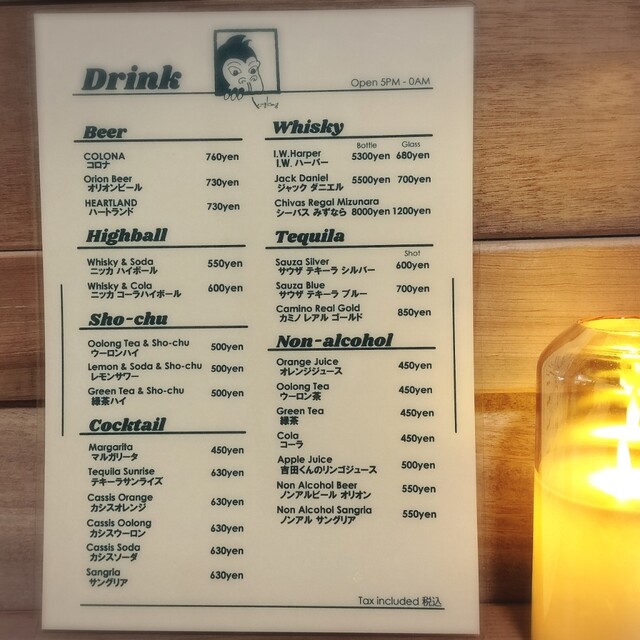 Drink
Open 5PM - 0AM
Beer
COLONA 760yen
コロナ
Orion Beer 730yen
オリオンビール
HEARTLAND 730yen
ハートランド
Highball
Whisky & Soda 550yen
ニッカ ハイボール
Whisky & Cola 600yen
ニッカ コーラハイボール
Sho-chu
Oolong Tea & Sho-chu 500yen
ウーロンハイ
Lemon & Soda & Sho-chu 500yen
レモンサワー
Green Tea & Sho-chu 500yen
緑茶ハイ
Cocktail
Margarita 450yen
マルガリータ
Tequila Sunrise 630yen
テキーラサンライズ
Cassis Orange 630yen
カシスオレンジ
Cassis Oolong 630yen
カシスウーロン
Cassis Soda 630yen
カシスソーダ
Sangria 630yen
サングリア
Whisky
Bottle Glass
I.W.Harper 5300yen 680yen
I.W. ハーパー
Jack Daniel 5500yen 700yen
ジャック ダニエル
Chivas Regal Mizunara
シーバス みずなら 8000yen 1200yen
Tequila
Shot
Sauza Silver 600yen
サウザ テキーラ シルバー
Sauza Blue 700yen
サウザ テキーラ ブルー
Camino Real Gold 850yen
カミノ レアル ゴールド
Non-alcohol
Orange Juice 450yen
オレンジジュース
Oolong Tea 450yen
ウーロン茶
Green Tea 450yen
緑茶
Cola 450yen
コーラ
Apple Juice 500yen
吉田くんのリンゴジュース
Non Alcohol Beer 550yen
ノンアルビール オリオン
Non Alcohol Sangria 550yen
ノンアル サングリア
Tax included 税込